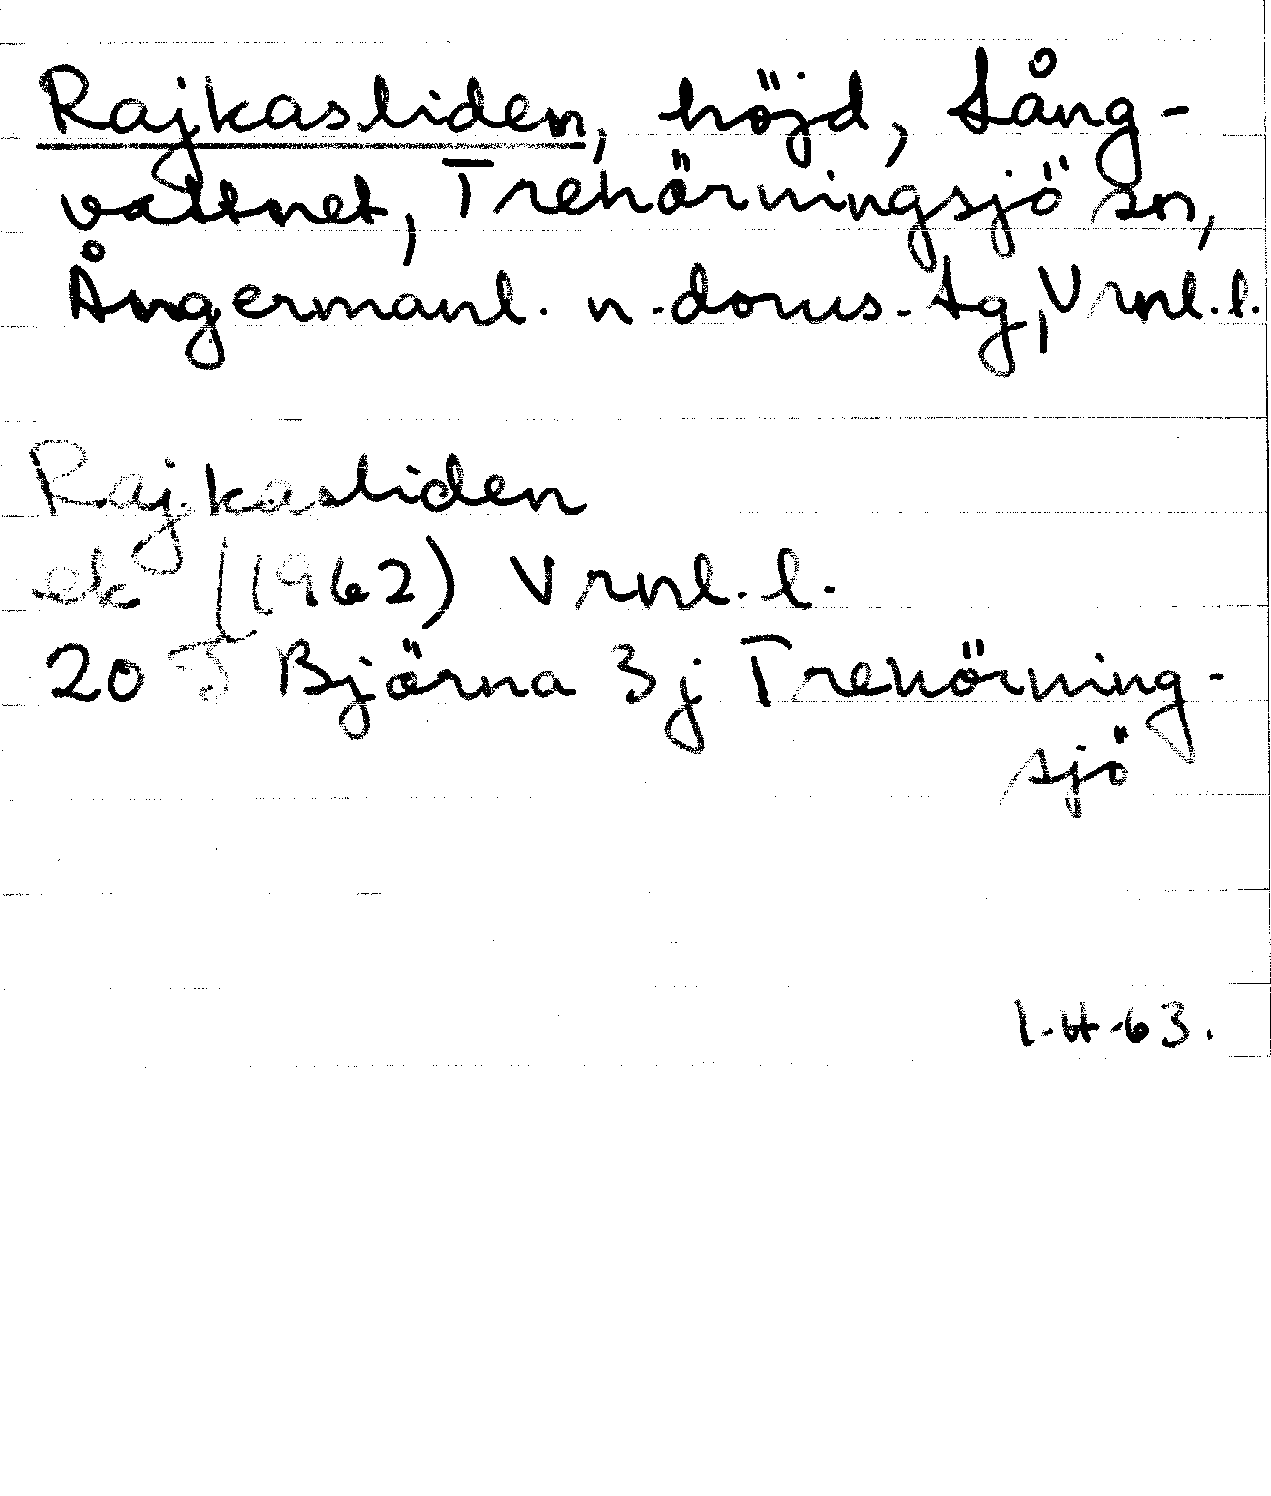 Rajkasliden, höjd, Lång-
vattnet, Trehörningsjö sn,
Ångermanl. n. doms. tg, Vrnl. l.
Rajkasliden
ek (1962) Vrnl. l.
20 J Björna 3 j Trehörning-
sjö
1-4-63.